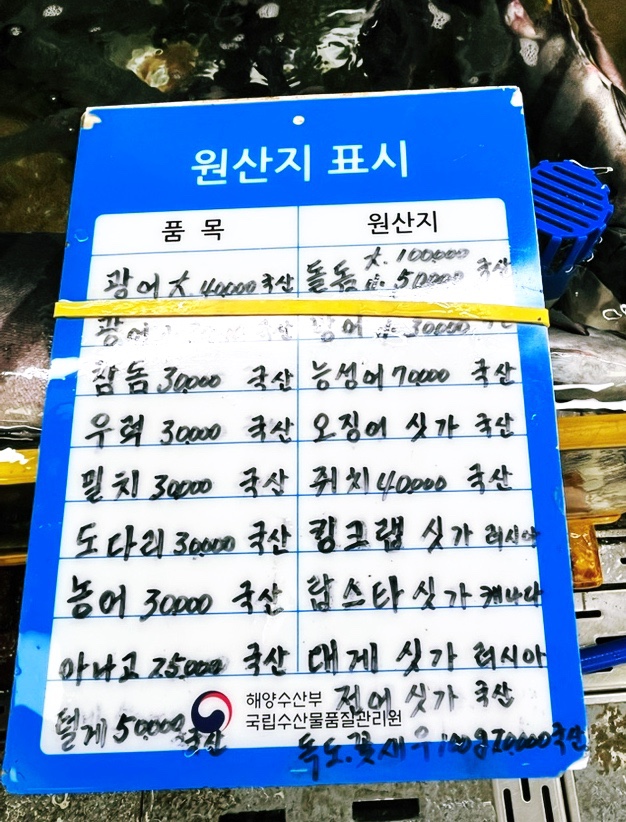 원산지 표시
품 목 원산지
광어 大 40,000 국산 돌돔 大. 100,000 小. 50,000 국산
광어 방어 30,000
참돔 30,000 국산 능성어 70,000 국산
우럭 30,000 국산 오징어 싯가 국산
밀치 30,000 국산 쥐치 40,000 국산
도다리 30,000 국산 킹크랩 싯가 러시아
농어 30,000 국산 랍스타 싯가 캐나다
아나고 25,000 국산 대게 싯가 러시아
해양수산부 전어 싯가 국산
털게 50,000 국산 국립수산물품질관리원
독도.꽃새우 100g 국산